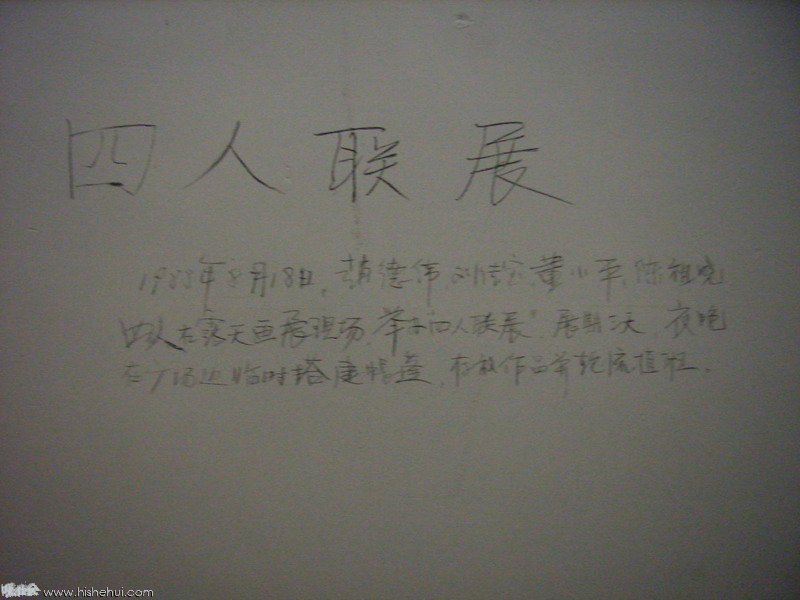 四人联展
1988年8月18日,德伟 董小平,陈祖
四人在露天画展现场,举办"四人联展",展期 天,夜晚
在广场边临时搭建帐篷,存放作品并轮流值班。
www.hishehui.com